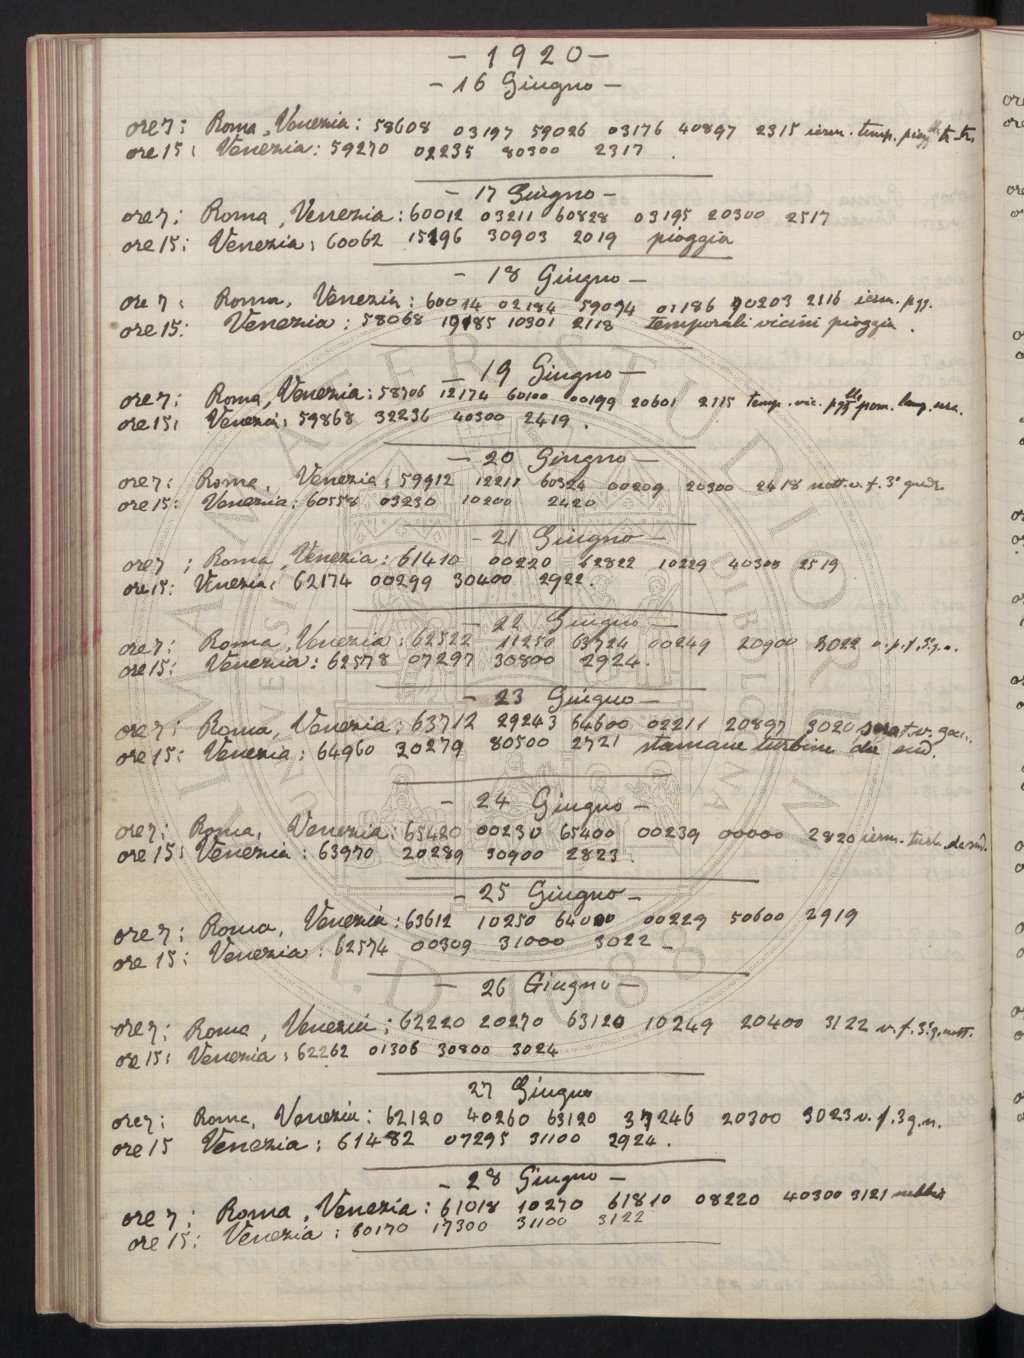 – 1920 –
– 16 Giugno –
ore 7: Roma, Venezia: 58608 03197 59026 03176 40897 2315 iersi. temp. piogg.
ore 15: Venezia: 59270 02235 80300 2317 .
– 17 Giugno –
ore 7: Roma, Venezia: 60012 03211 60828 03195 20300 2517
ore 15: Venezia: 60062 15196 30903 2019 pioggia
– 18 Giugno –
ore 7: Roma, Venezia: 60014 02184 59074 01186 70203 2116
ore 15: Venezia: 58068 19185 10301 2118 temporali vicini pioggia .
– 19 Giugno –
ore 7: Roma, Venezia: 58706 12174 60100 00199 20601 2115 temp. vic.
ore 15: Venezia: 59868 32236 40300 2419 .
– 20 Giugno –
ore 7: Roma, Venezia: 59912 12211 60324 00209 20300 2418 nott. v. f. 3° quad.
ore 15: Venezia: 60558 03230 10200 2420
– 21 Giugno –
ore 7: Roma, Venezia: 61410 00220 62822 10229 40300 2519
ore 15: Venezia: 62174 00299 30400 2922.
– 22 Giugno –
ore 7: Roma, Venezia: 62522 11250 63724 00249 20900 3022
ore 15: Venezia: 62578 07297 30800 2924.
– 23 Giugno –
ore 7: Roma, Venezia: 63712 29243 64600 02211 20897 3020
ore 15: Venezia: 64960 30279 80500 2721 stamane turbine da sud.
– 24 Giugno –
ore 7: Roma, Venezia: 65420 00230 65400 00239 00000 2820 turb. da sud.
ore 15: Venezia: 63970 20289 30900 2823
– 25 Giugno –
ore 7: Roma, Venezia: 63612 10250 64000 00229 50600 2919
ore 15: Venezia: 62574 00309 31000 3022 –
– 26 Giugno –
ore 7: Roma, Venezia: 62220 20270 63120 10249 20400 3122 v. f. 3° q. nott.
ore 15: Venezia: 62262 01306 30800 3024
27 Giugno
ore 7: Roma, Venezia: 62120 40260 63120 37246 20300 3023 v. f. 3 q. n.
ore 15 Venezia: 61482 07295 31100 2924.
– 28 Giugno –
ore 7: Roma, Venezia: 61018 10270 61810 08220 40300 3121 nebbia
ore 15: Venezia: 60170 17300 31100 3122
ALMA MATER STUDIORUM
A.D. 1088